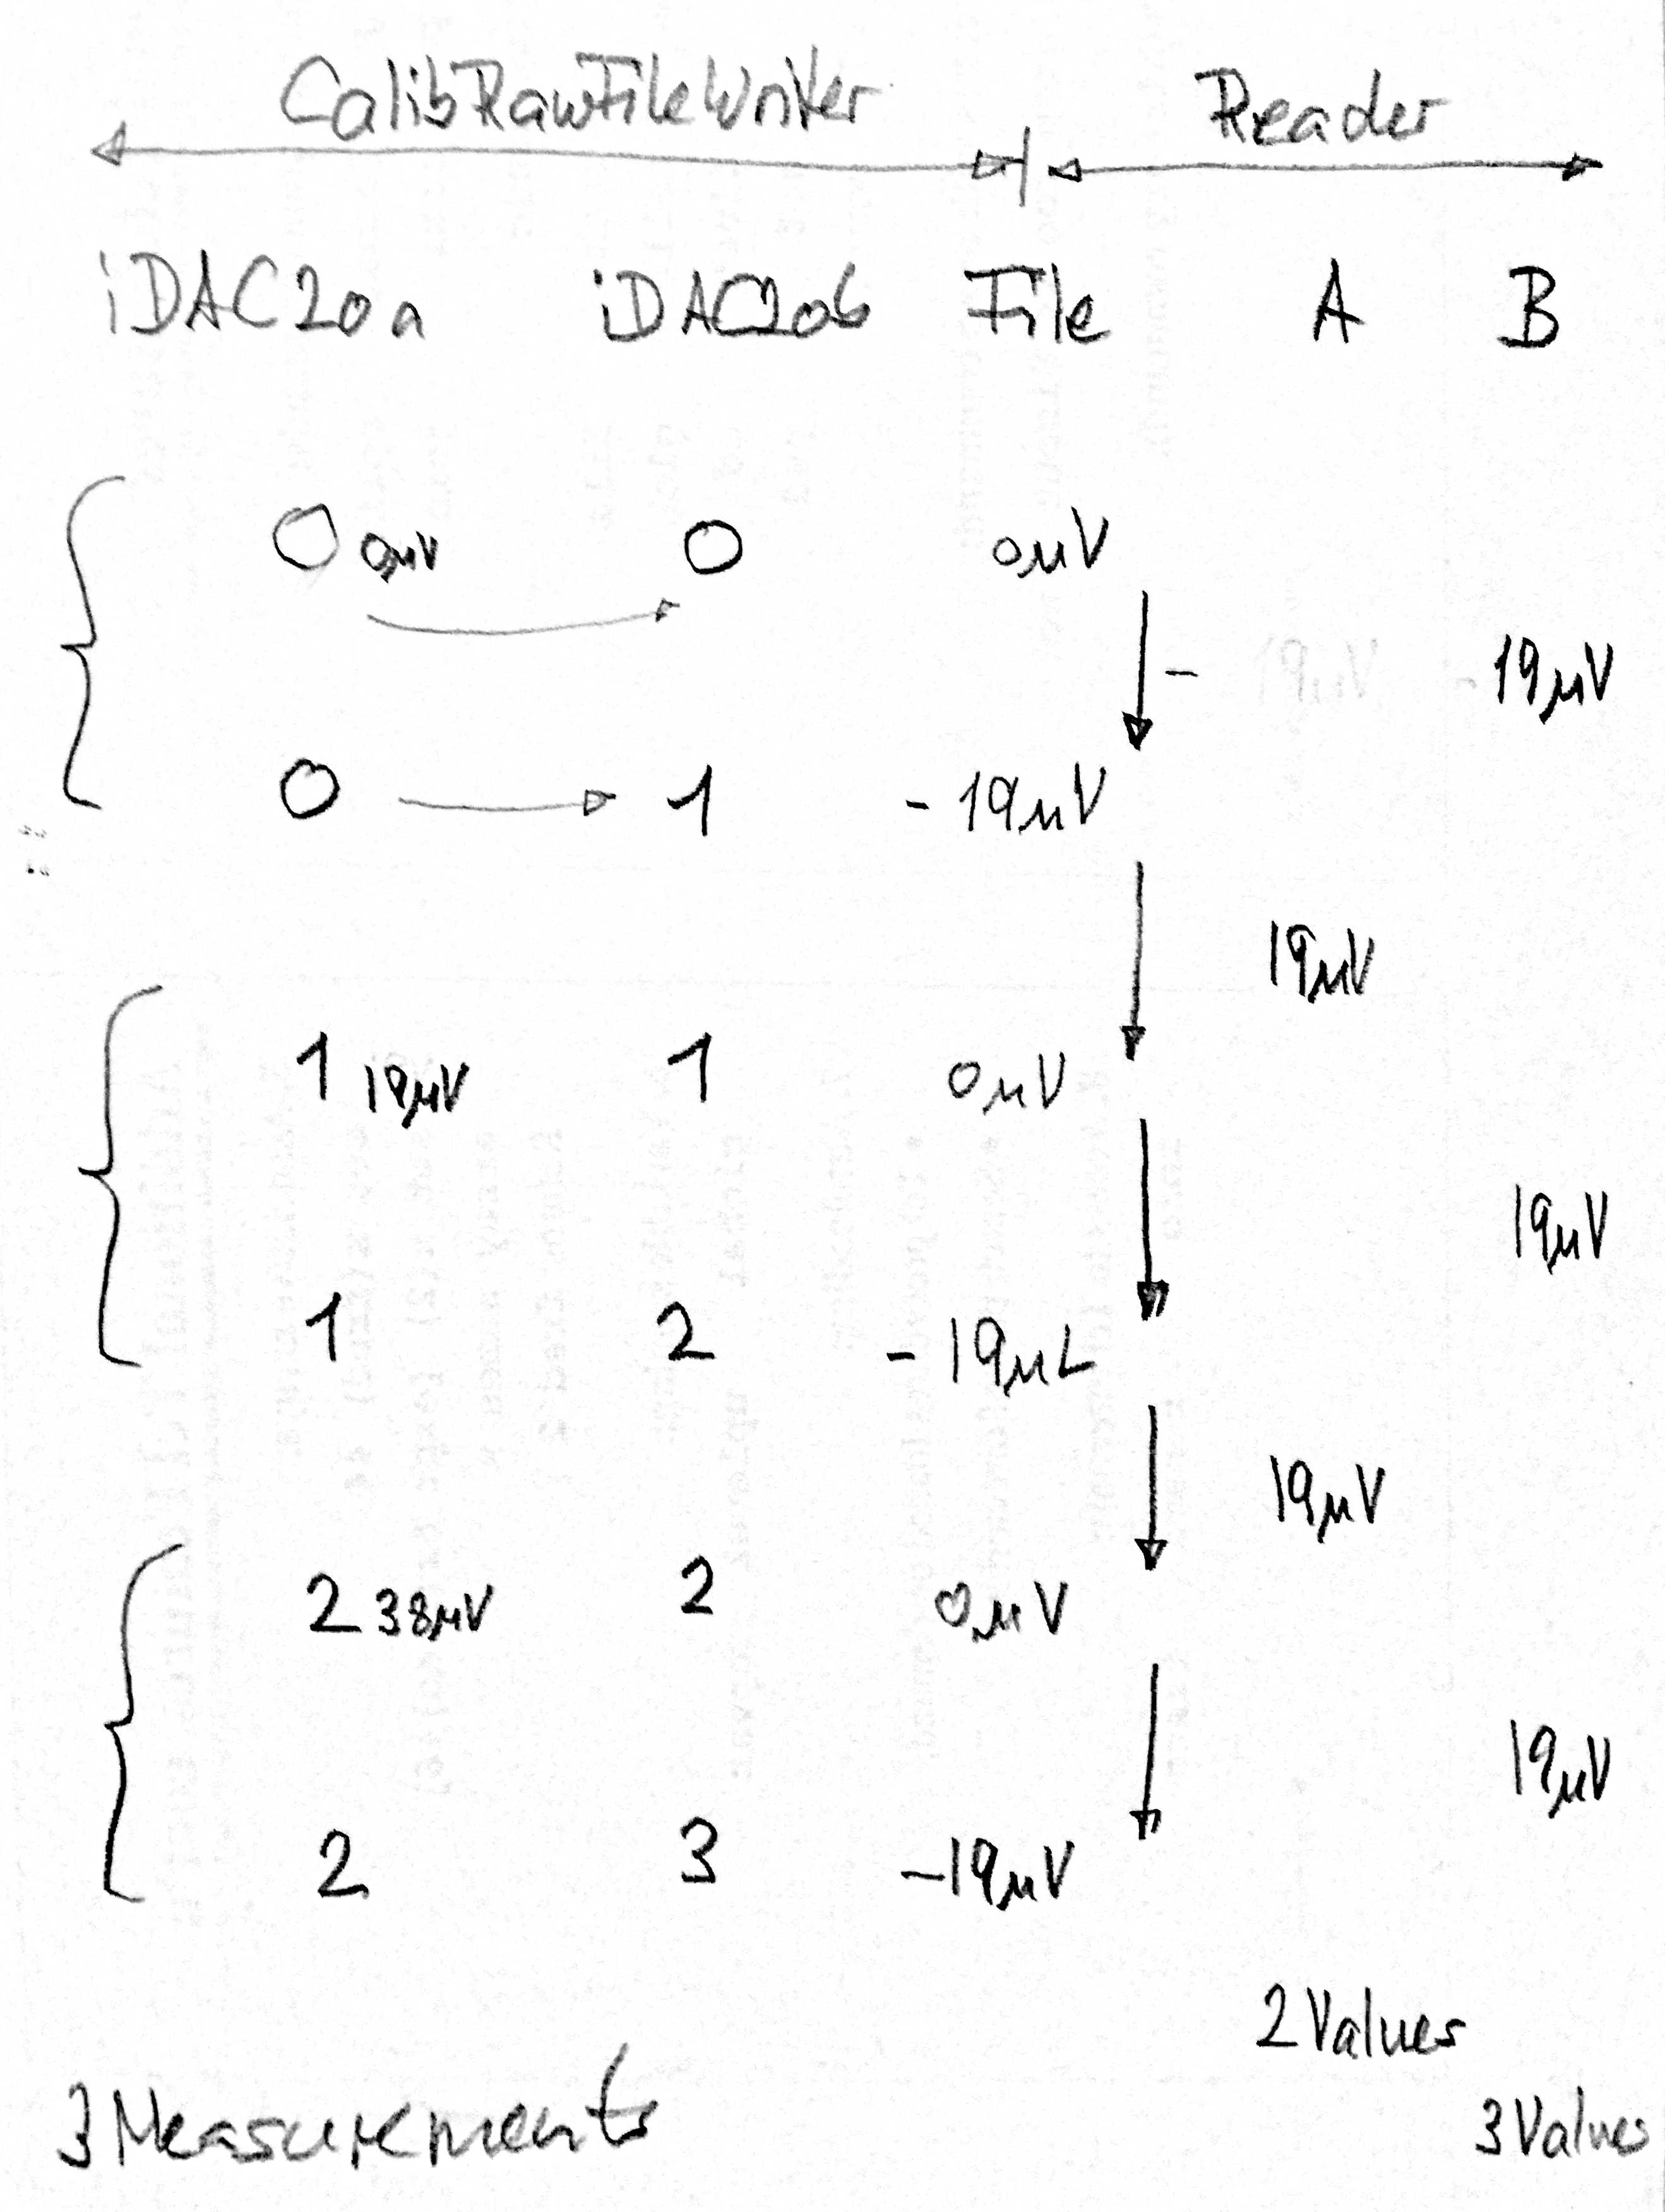 CalibRawFileWriter Reader
iDAC20a iDAC20b File A B
0 0µV 0 0µV
- 19µV 19µV
0 1 - 19µV
19µV
1 19µV 1 0µV
19µV
1 2 - 19µV
19µV
2 38µV 2 0µV
19µV
2 3 -19µV
2 Values
3 Measurements 3 Values